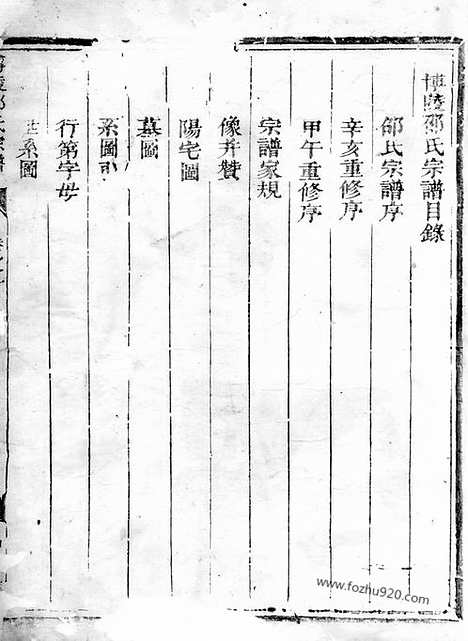 博陵邵氏宗譜目錄
邵氏宗譜序
辛亥重修序
甲午重修序
宗譜家規
像并贊
陽宅圖
墓圖
系圖引
行第字母
世系圖
www.fozhu920.com